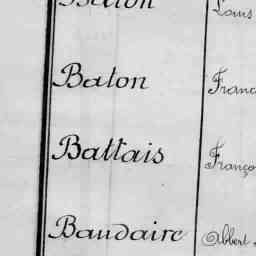 Baton Louis
Baton Franç
Battais Franço
Baudaire Abbert